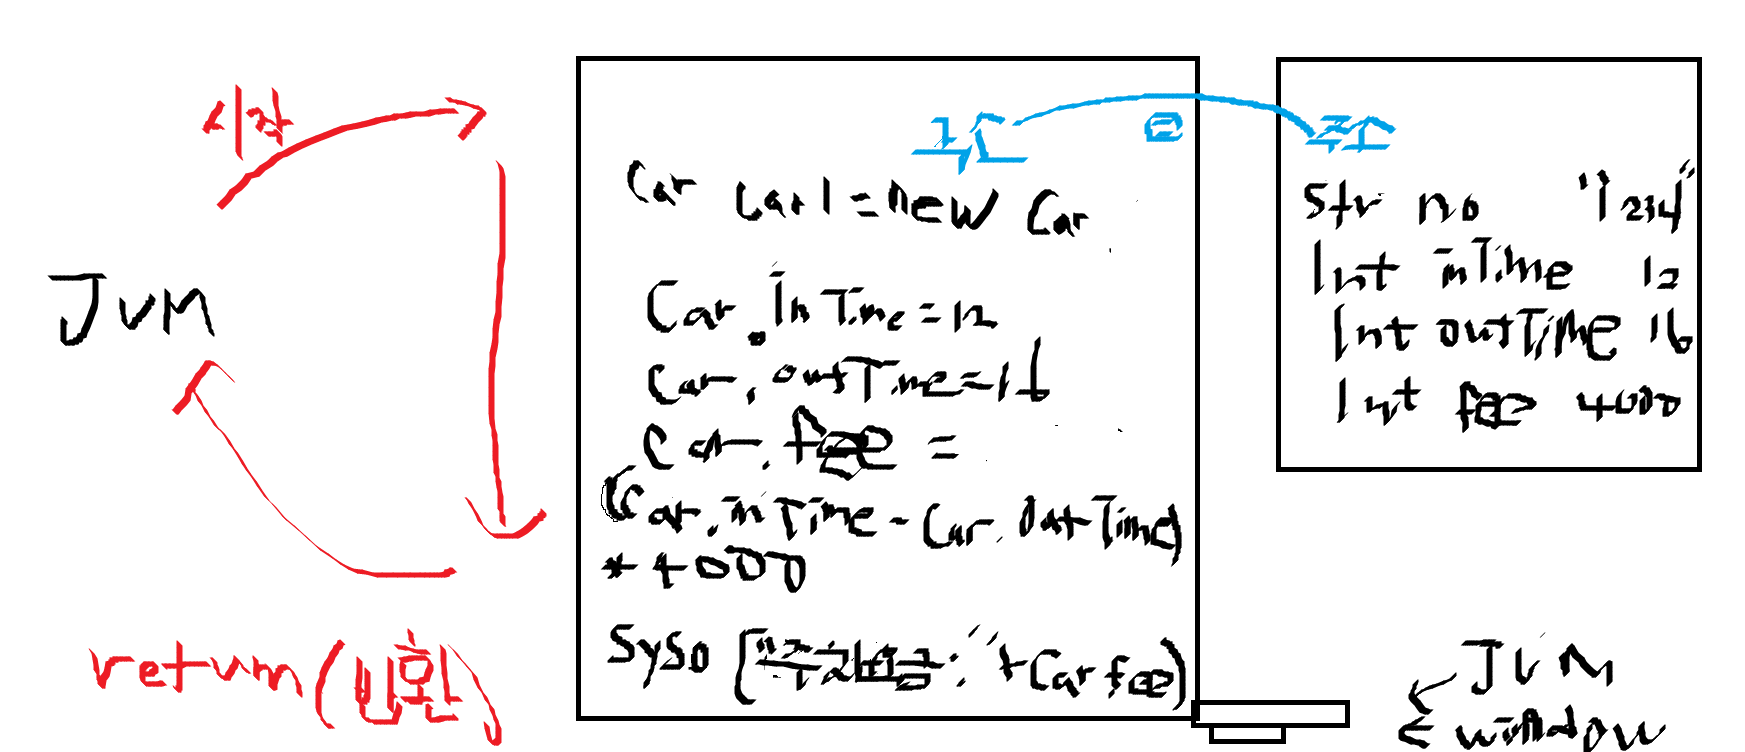 시작
JVM
return(반환)
주소
Car car1 = new Car
Car.InTime = 12
Car.outTime = 16
Car.fee =
(Car.inTime - Car.OutTime)
* 4000
Syso ("주차요금 : " + Car fee)
주소
Str no "1234"
Int inTime 12
Int outTime 16
Int fee 4000
JVM
window